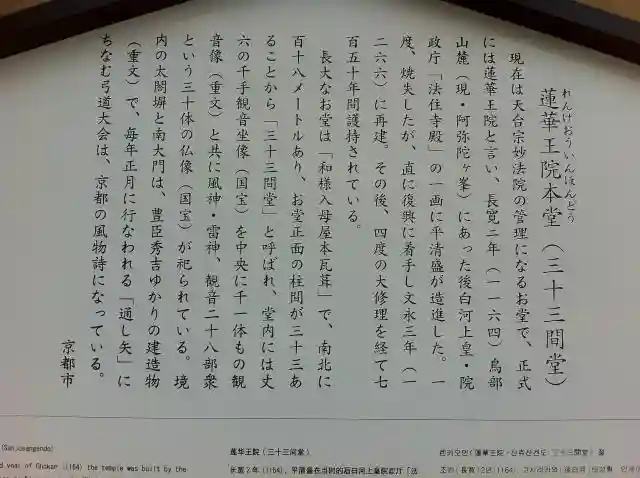 れんげおういんほんどう
蓮華王院本堂（三十三間堂）
現在は天台宗妙法院の管理になるお堂で、正式
には蓮華王院と言い、長寛二年（一一六四）鳥部
山麓（現・阿弥陀ヶ峯）にあった後白河上皇・院
政庁「法住寺殿」の一画に平清盛が造進した。一
度、焼失したが、直に復興に着手し文永三年（一
二六六）に再建。その後、四度の大修理を経て七
百五十年間護持されている。
長大なお堂は「和様入母屋本瓦葺」で、南北に
百十八メートルあり、お堂正面の柱間が三十三あ
ることから「三十三間堂」と呼ばれ、堂内には丈
六の千手観音坐像（国宝）を中央に千一体もの観
音像（重文）と共に風神・雷神、観音二十八部衆
という三十体の仏像（国宝）が祀られている。境
内の太閤塀と南大門は、豊臣秀吉ゆかりの建造物
（重文）で、毎年正月に行なわれる「通し矢」に
ちなむ弓道大会は、京都の風物詩になっている。
京都市
(Sanjusangendo)
d year of Chokan (1164) the temple was built by the
莲华王院（三十三间堂）
长宽2年（1164），平清盛在当时的后白河上皇院政厅「法
렌게오인（蓮華王院・산쥬산겐도：三十三間堂）절